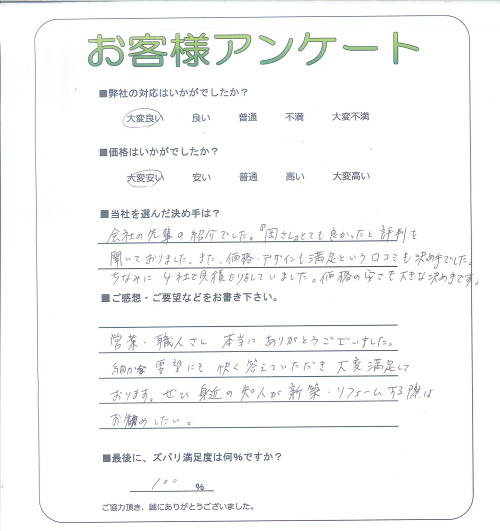 お客様アンケート
■弊社の対応はいかがでしたか?
大変良い 良い 普通 不満 大変不満
■価格はいかがでしたか?
大変安い 安い 普通 高い 大変高い
■当社を選んだ決め手は?
会社の先輩の紹介でした。『岡さん』とても良かったと評判を
聞いておりました。また、価格・デザインも満足という口コミも決め手でした。
ちなみに4社で見積もりをしていました。価格の安さも大きな決め手です。
■ご感想・ご要望などをお書き下さい。
営業・職人さん 本当にありがとうございました。
細かな要望にも快く答えていただき大変満足して
おります。ぜひ身近の知人が新築・リフォームする際は
お勧めしたい。
■最後に、ズバリ満足度は何%ですか?
100 %
ご協力頂き、誠にありがとうございました。